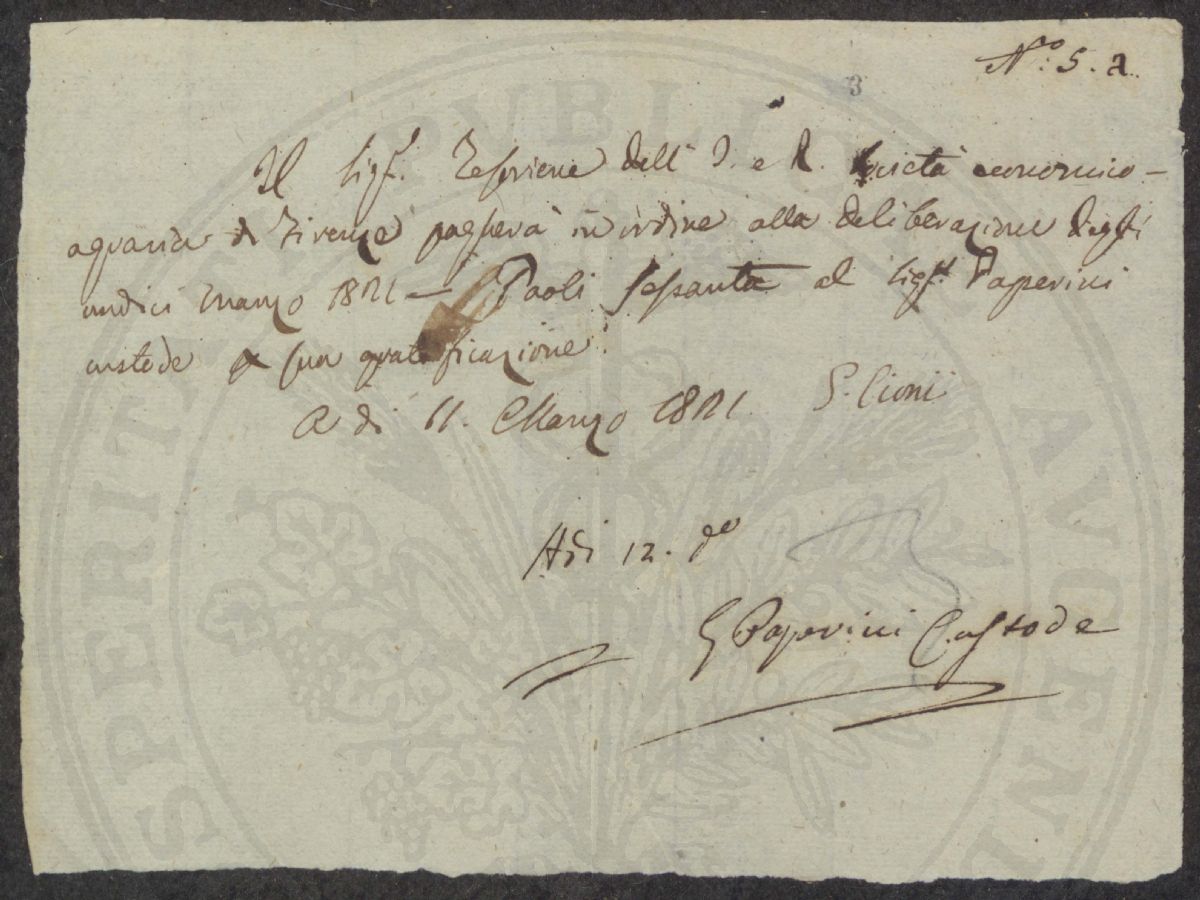 N.o 5. a
3
Il Sigr. Tesoriere dell' I. e R. Società economico-
agraria di Firenze pagherà in ordine alla deliberazione degli
undici marzo 1821 — Paoli sessanta al Sigr. Paperini
custode p sua gratificazione.
A di 11. Marzo 1821. G. Cioni
Adi 12. do
G Paperini Custode
PROSPERITATI PVBLICAE AVGENDAE